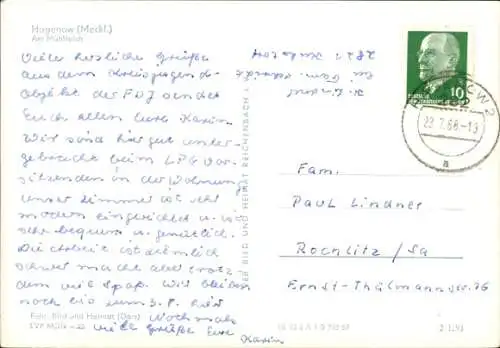 Hagenow (Meckl.)
Am Mühlteich
Viele herzliche Grüße
aus dem Kreisjugendobjekt
Objekt der FDJ sendet
Euch allen Eure Karin.
Wir sind hier gut unter-
gebracht beim LPG Vor-
sitzenden in der Wohnung
unser Zimmer ist sehr
modern eingerichtet u. ist
sehr bequem u. gemütlich.
Die Arbeit ist ziemlich
schwer macht aber trotz-
dem viel Spaß. Wir bleiben
noch bis zum 3.8. hier
Nochmals
viele Grüße Eure
Karin
Foto: Bild und Heimat
BILD UND HEIMAT REICHENBACH
10
22.7.66.-13
a
Fam.
Paul Lindner
Rochlitz/Sa
Ernst-Thälmannstr. 76